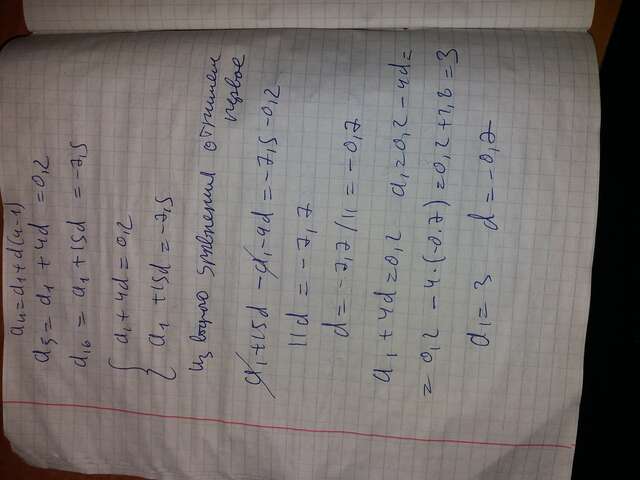 aₙ = a₁ + d(n-1)
a₅ = a₁ + 4d = 0,2
a₁₆ = a₁ + 15d = -7,5
a₁ + 4d = 0,2
a₁ + 15d = -7,5
Из второго уравнения отнимем
первое
a₁ + 15d - a₁ - 4d = -7,5 - 0,2
11d = -7,7
d = -7,7/11 = -0,7
a₁ + 4d = 0,2 a₁ = 0,2 - 4d =
= 0,2 - 4·(-0.7) = 0,2 + 2,8 = 3
a₁ = 3 d = -0,7